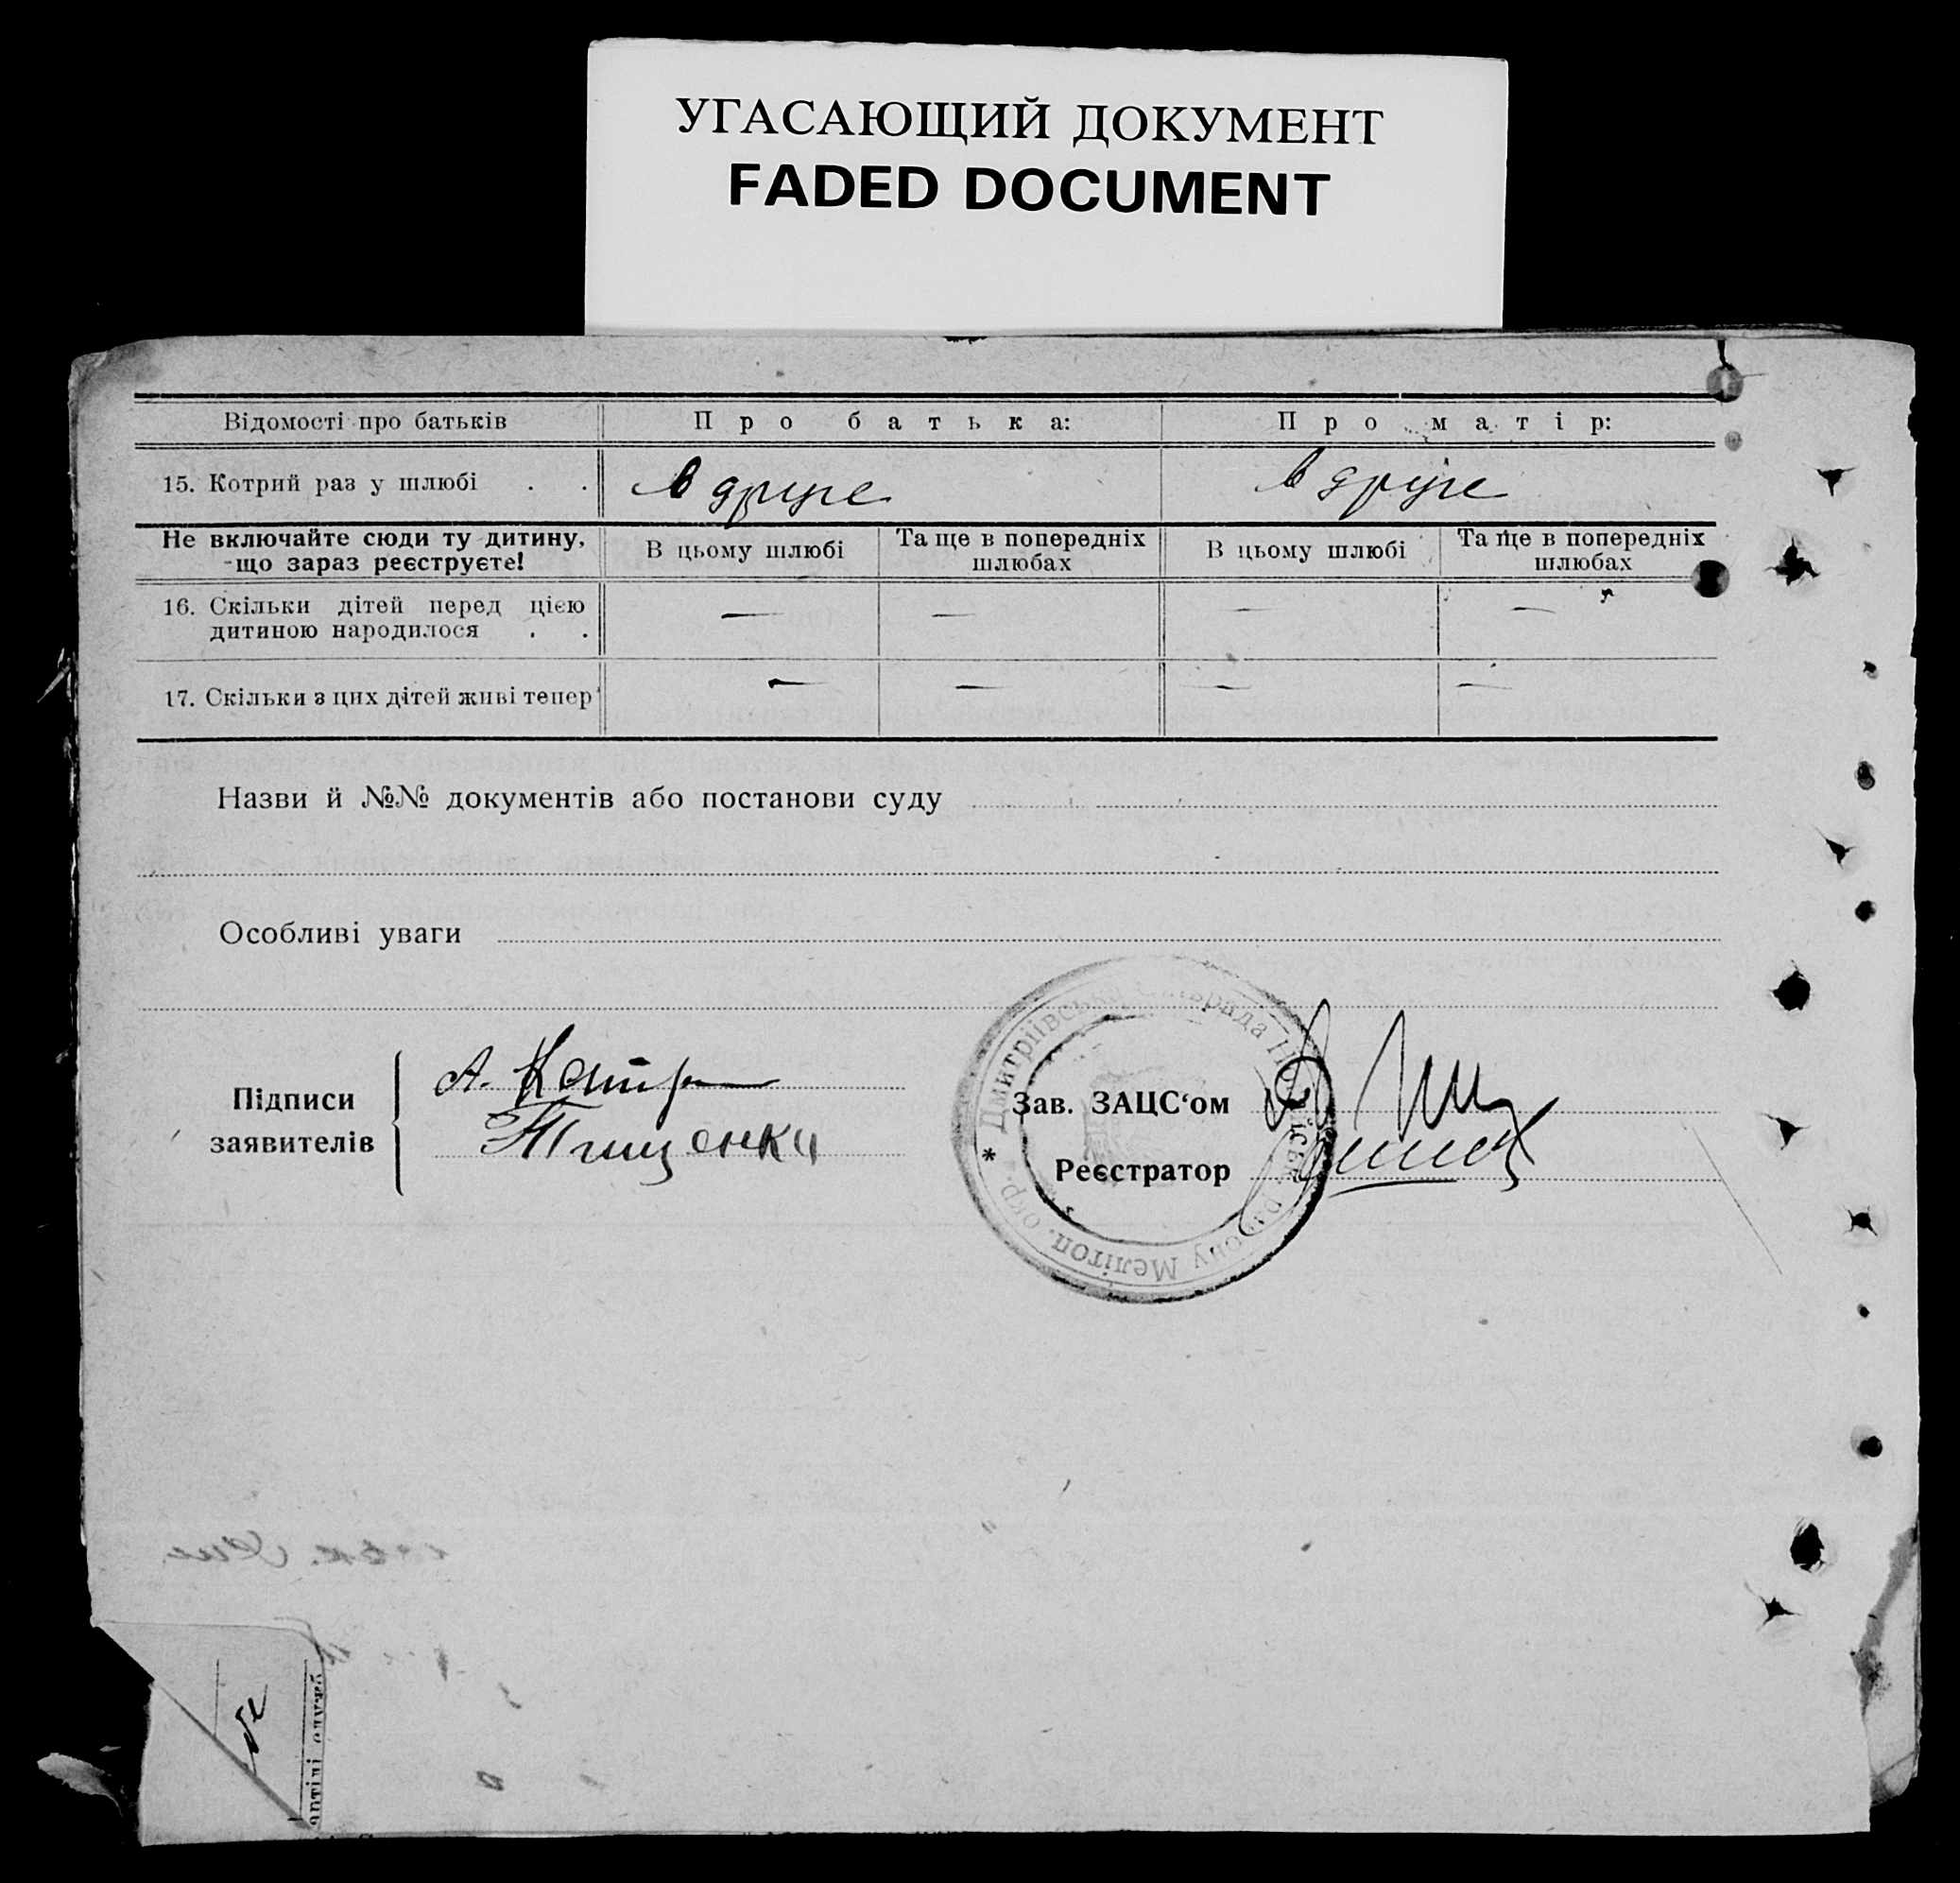 УГАСАЮЩИЙ ДОКУМЕНТ
FADED DOCUMENT
Відомості про батьків
Про батька:
Про матір:
15. Котрий раз у шлюбі . .
в друге
в друге
Не включайте сюди ту дитину,
що зараз реєструєте!
В цьому шлюбі
Та ще в попередніх
шлюбах
В цьому шлюбі
Та ще в попередніх
шлюбах
16. Скільки дітей перед цією
дитиною народилося . .
— — — —
17. Скільки з цих дітей живі тепер
— — — —
Назви й №№ документів або постанови суду
Особливі уваги
Підписи
заявителів
А.
Тищенко
Зав. ЗАЦС‘ом
Реєстратор
* Дмитріївська рада району Мелітоп. окр.